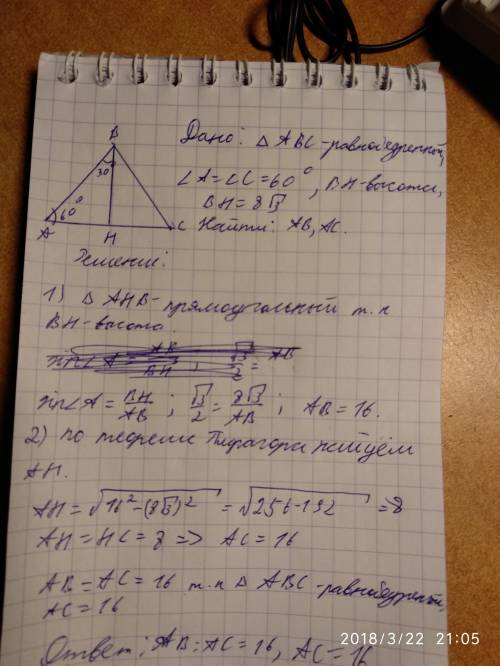 Дано: △ ABC - равнобедренный,
∠A=∠C=60°, BH-высота,
BH=8√3
Найти: AB, AC.
B
30°
60°
A
H
C
Решение:
1) △ AHB - прямоугольный т.к
BH-высота.
sin∠A = BH/AB ; √3/2 = 8√3/AB ; AB=16.
2) по теореме Пифагора найдём
AH.
AH = √16²-(8√3)² = √256-192 =8
AH = HC = 8 => AC = 16
AB = AC = 16 т.к △ ABC - равнобедренный,
AC = 16
Ответ: AB=AC=16, AC=16
2018/3/22 21:05